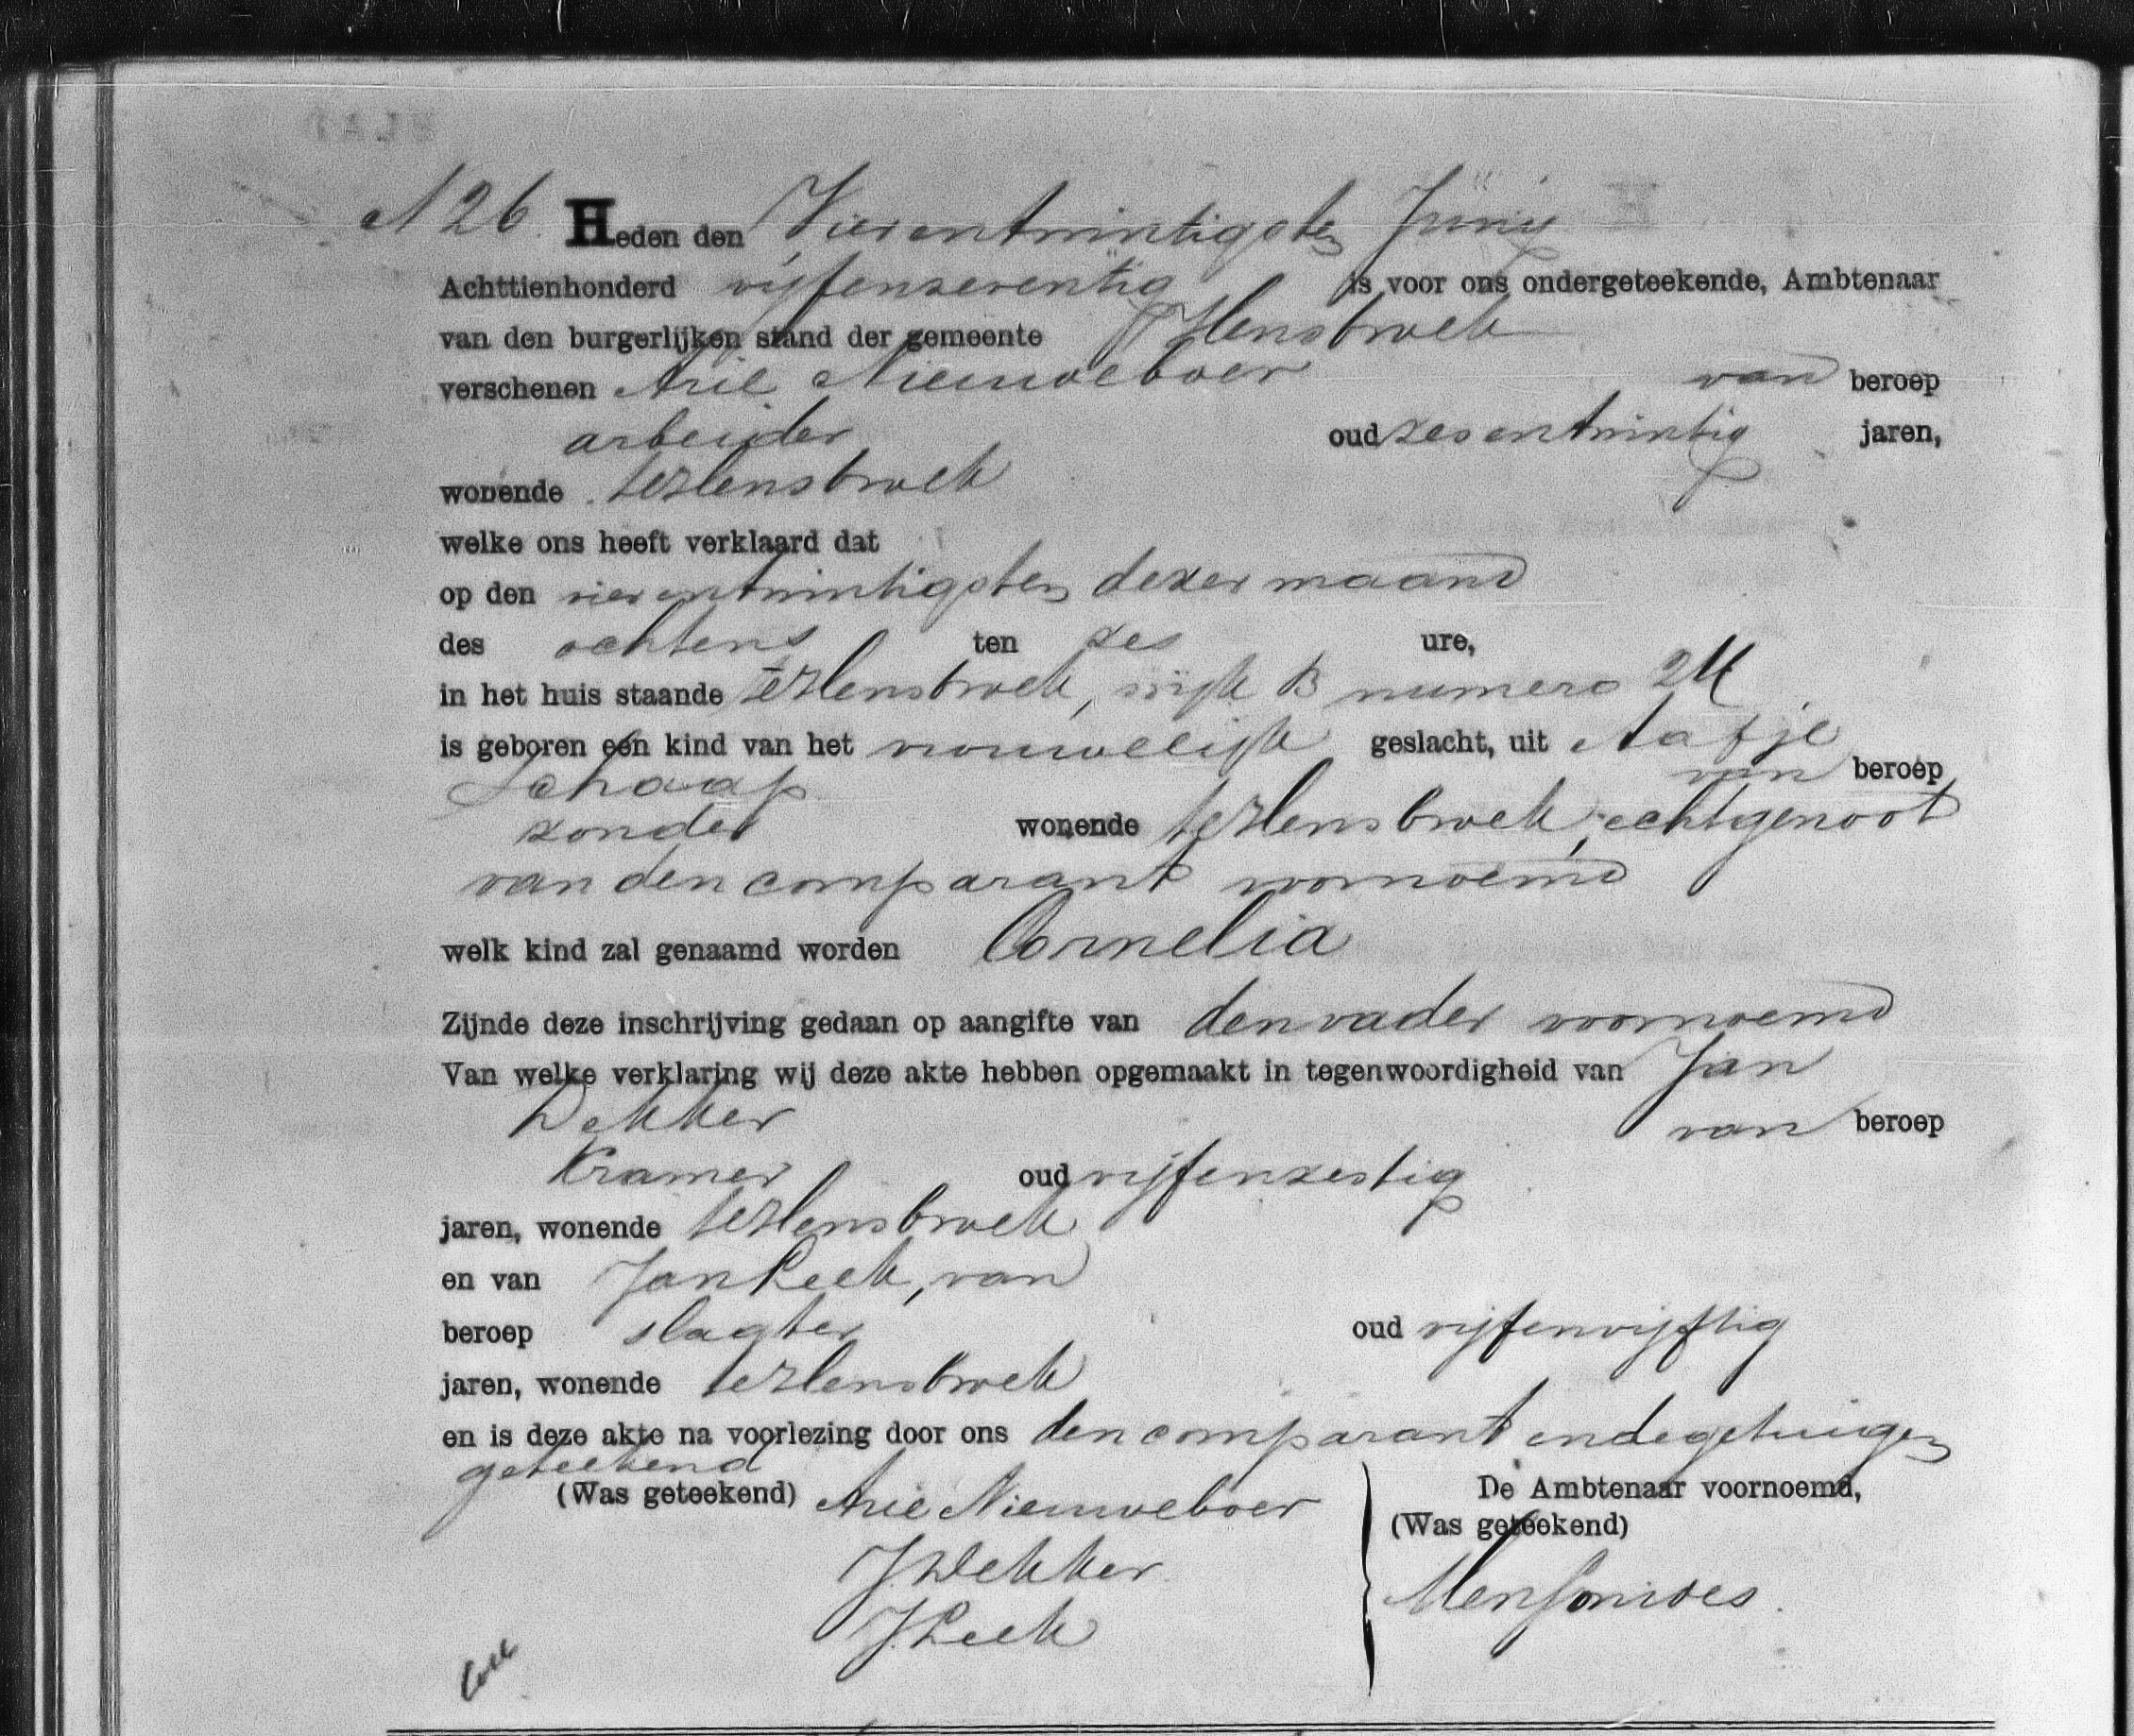 N 26. Heden den Vierentwintigsten Junij
Achttienhonderd vijfenzeventig is voor ons ondergeteekende, Ambtenaar
van den burgerlijken stand der gemeente Hensbroek
verschenen Arie Nieuweboer van beroep
arbeider oud zesentwintig jaren,
wonende te Hensbroek
welke ons heeft verklaard dat
op den vierentwintigsten dezer maand
des ochtens ten zes ure,
in het huis staande te Hensbroek, wijk B numero 24
is geboren een kind van het vrouwelijk geslacht, uit Aafje
Schaap van beroep
zonder wonende te Hensbroek, echtgenoot
van den comparant voornoemd
welk kind zal genaamd worden Cornelia
Zijnde deze inschrijving gedaan op aangifte van den vader voornoemd
Van welke verklaring wij deze akte hebben opgemaakt in tegenwoordigheid van Jan
Dekker van beroep
Kramer oud vijfenzestig
jaren, wonende te Hensbroek
en van Jan Leek, van
beroep slagter oud vijfenvijftig
jaren, wonende te Hensbroek
en is deze akte na voorlezing door ons den comparant en de getuigen
geteekend
(Was geteekend) Arie Nieuweboer
J. Dekker
J. Leek
De Ambtenaar voornoemd,
(Was geteekend)
Mensonides.